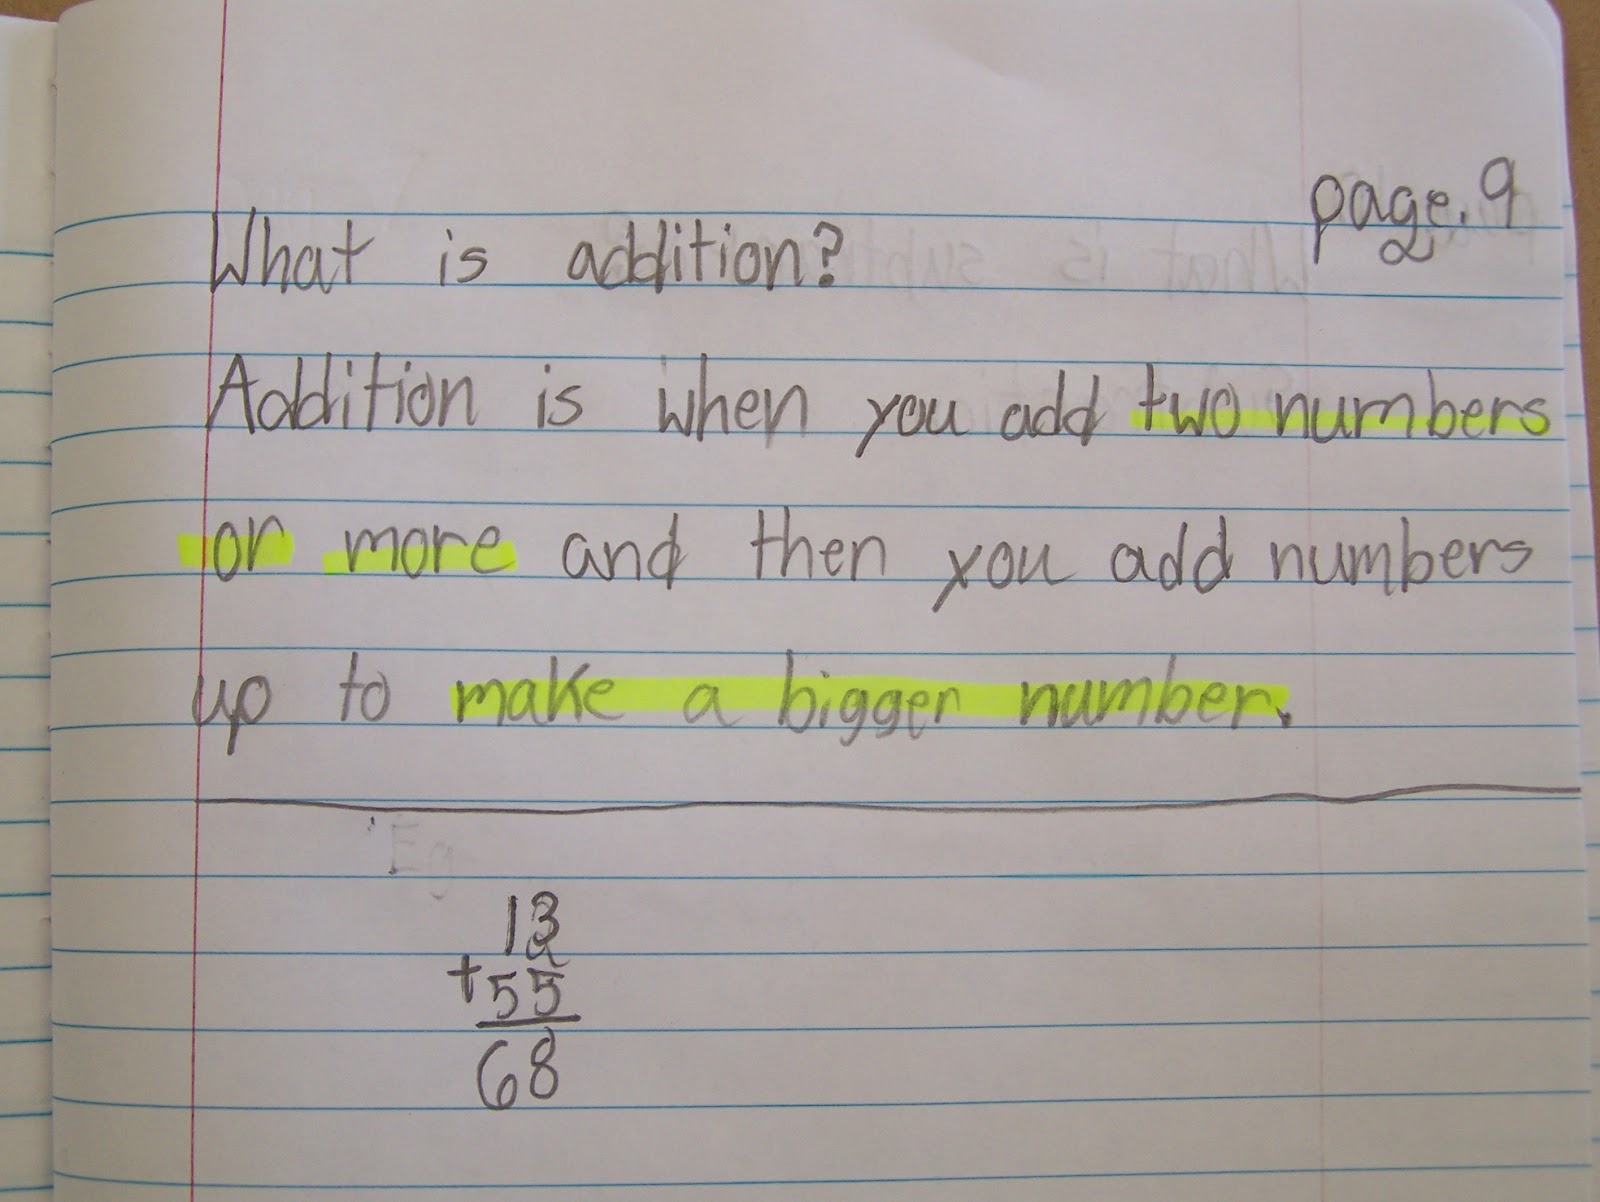 page. 9
What is addition?
Addition is when you add two numbers
or more and then you add numbers
up to make a bigger number.
13
+55
68